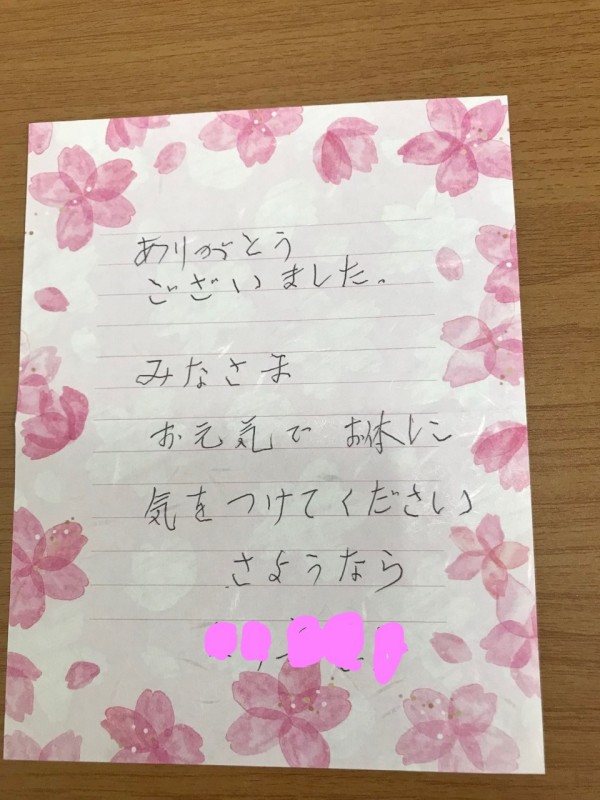 ありがとう
ございました。
みなさま
お元気で お体に
気をつけてください
さようなら